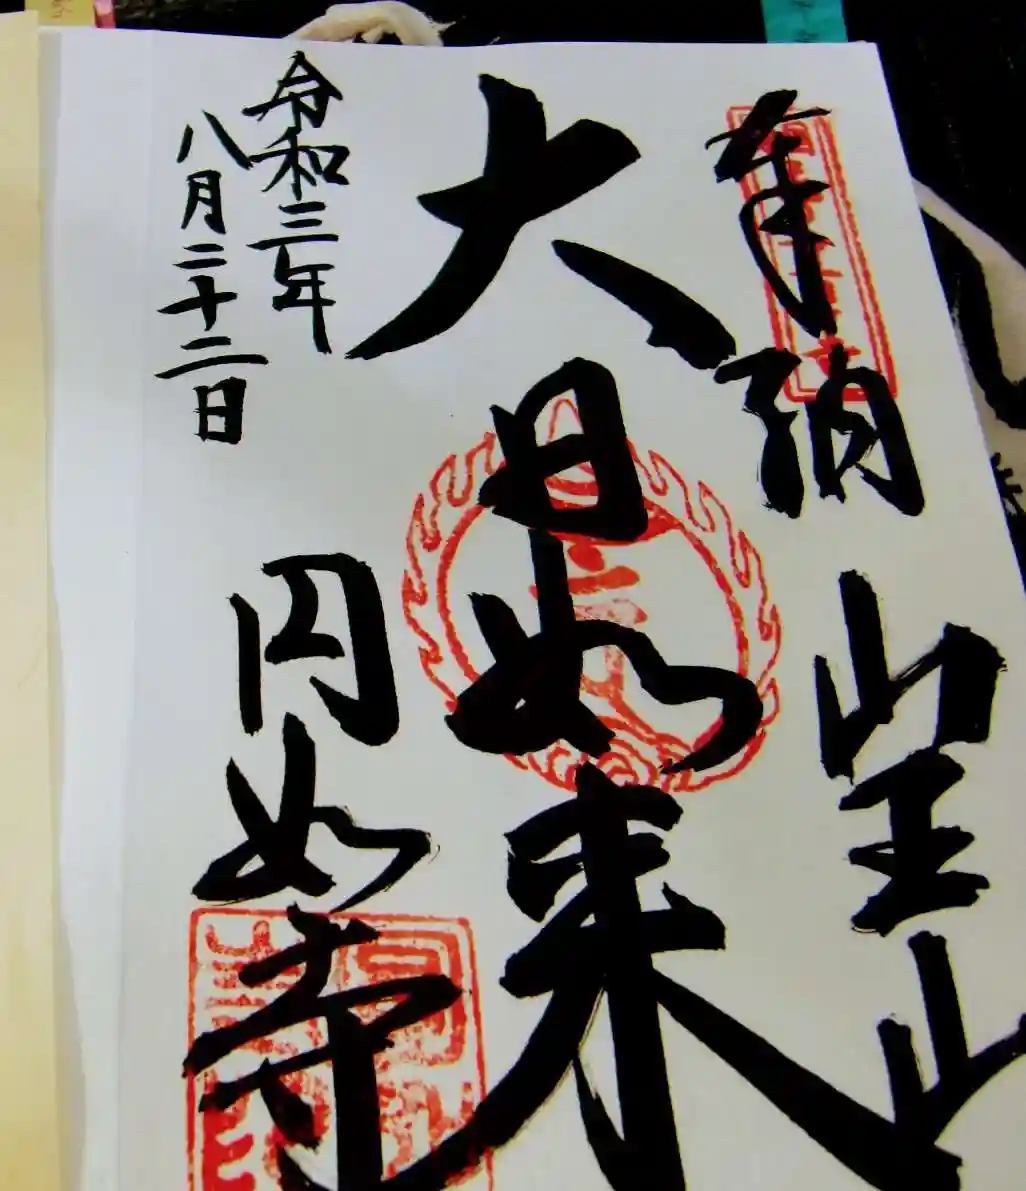 奉納
山王山
大日如来
令和三年
八月二十二日
円如寺